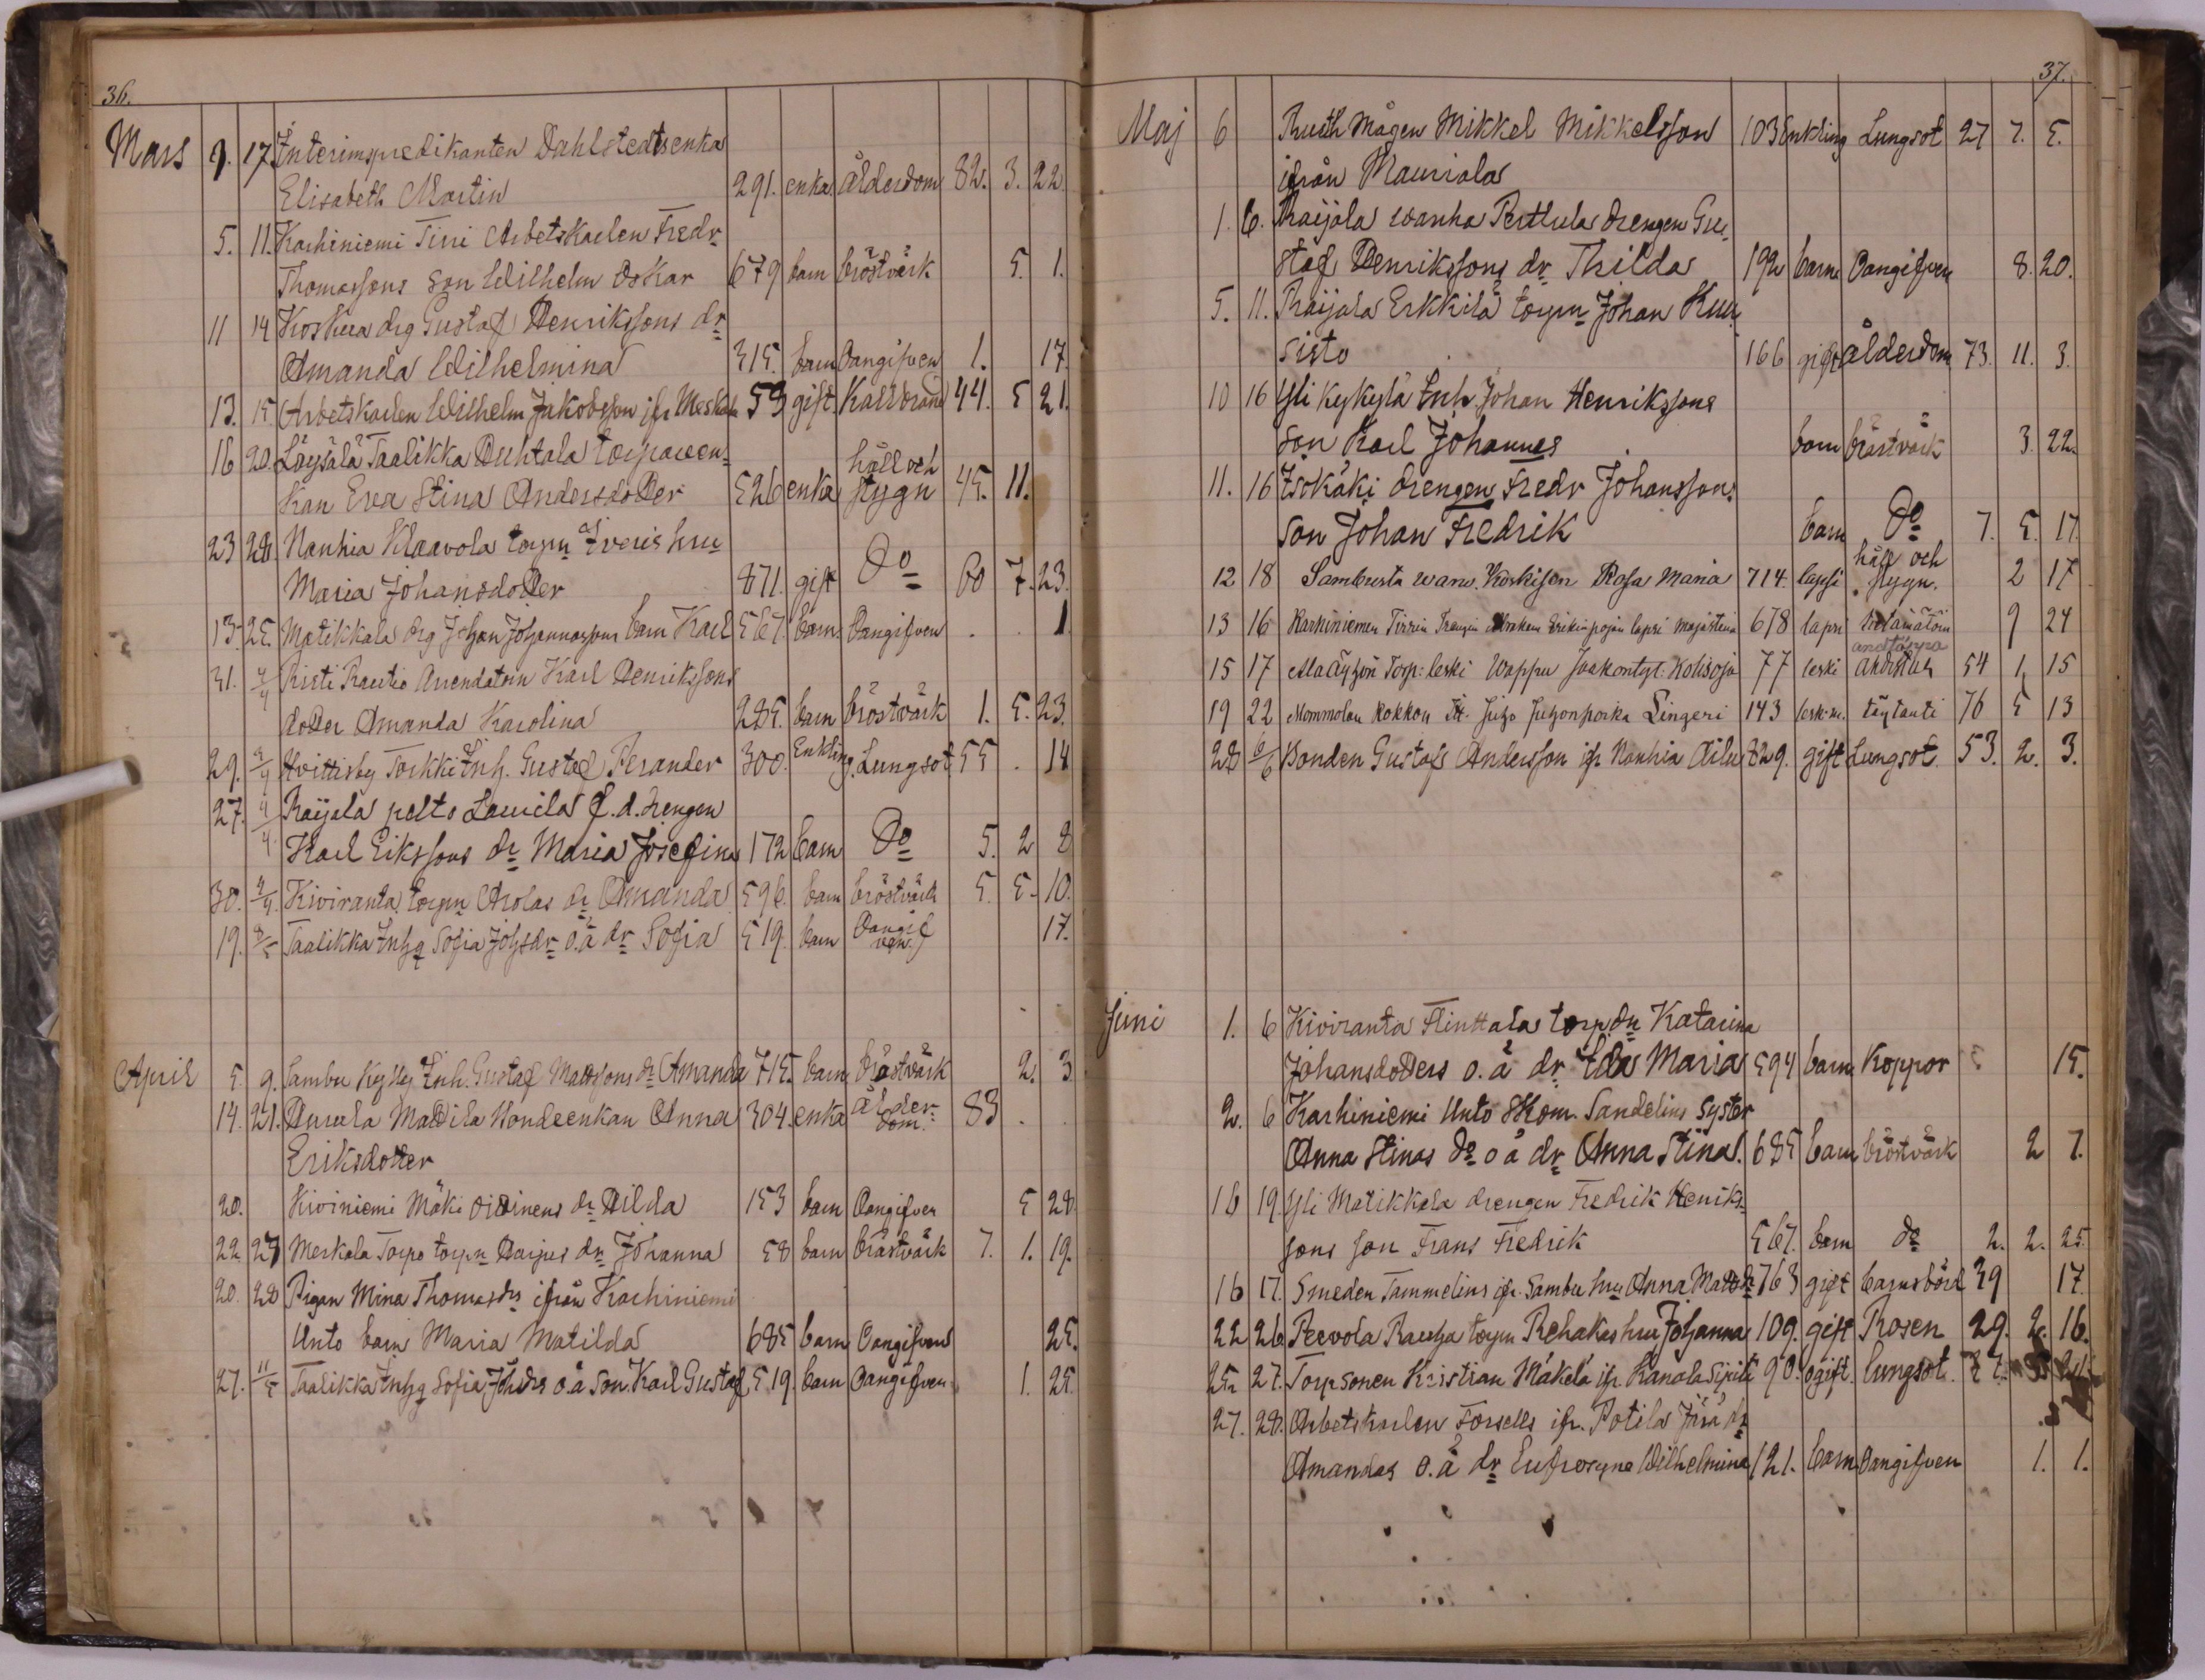 36.
Mars 9. 17. Interimspredikanten Dahlstedts enka
Elisabeth Martin 291. enka ålderdom 82. 3. 22.
5. 11. Karhiniemi Tirri Arbetskarlen Fredr
Thomassons son Wilhelm Oskar 679 barn bröstvärk 5. 1.
11 14 Koskua drg Gustaf Henrikssons dr
Amanda Wilhelmina 315. barn Oangifven 1. 17.
13. 15. Arbetskarlen Wilhelm Jakobsson ifr Meskala 59 gift Kallbrand 44. 5 21.
16 20. Löysälä Taalikka Huhtala torpareen-
kan Eva Stina Andersdotter 526 enka håll och stygn 45. 11.
23 28. Nanhia Klaavola torpn Iveris hru
Maria Johansdotter 871. gift Do 60 7. 23.
13. 25. Matikkala drg Johan Johannassons barn Karl 567. barn Oangifven . . 1
31. 4/4 Risti Rautio Arrendatorn Karl Henrikssons
dotter Amanda Karolina 285. barn bröstvärk 1. 5. 23.
29. 4/4 Hvittisby Torkki Inh. Gustaf Ferander 300. Enkling. Lungsot 55 . 14
27. 4/4 Raijala pelto Laurila f. d. drengen
Karl Erikssons dr Maria Josefina 172 barn Do 5. 2 8
30. 4/4. Kiviranta torpn Arolas dr Amanda 596. barn bröstvärk 5. 5. 10.
19. 8/5 Taalikka Inhg Sofia Johsdr o.ä dr Sofia 519. barn Oangifven. 17.
April 5. 9. Sambu Kyly Inh. Gustaf Mattssons dr Amanda 715. barn bröstvärk 2. 3
14. 21. Aurula Mattila Bondeenkan Anna 304. enka ålderdom. 83 . .
Eriksdotter
20. Kiviniemi Mäki Oittinens dr Hilda 153 barn Oangifven 5 28.
22. 27 Meskala Torpo torpn Harjus dr Johanna 58 barn bröstvärk 7. 1. 19.
20. 28 Pigan Mina Thomasdrs ifrån Karhiniemi
Unto barn Maria Matilda 685 barn Oangifven 25.
27. 11/5 Taalikka Inhg Sofia Johsdrs o.ä son Karl Gustaf 519. barn Oangifven 1. 25.
37.
Maj 6 Ruuth mågen Mikkel Mikkelsson 103 Enkling Lungsot 27 7. 5.
ifrån Mauriala
1. 6. Raijala wanha Perttula drengen Gu-
staf Henrikssons dr Thilda 192 barn Oangifven 8. 20.
5. 11. Raijala Erkkilä torpn Johan Kuu-
sisto 166 gift ålderdom 73. 11. 3.
10 16 Yli Kykylä Inh. Johan Henrikssons
son Karl Johannes barn bröstvärk 3. 22.
11. 16 Isokäki drengen Fredr Johanssons
son Johan Fredrik barn Do 7. 5. 17.
12 18 Sambusta wanv. Koskisen Rosa Maria 714. lapsi håll och stygn. 2 17
13 16 Karhiniemen Tirrin Trengin Abraham Erikinpojan lapsi Majastiina 678 lapsi tietämätöin 9 24
15 17 Alaäyhön Torp: leski Wappu Jaakontyt: Kotisoja 77 leski andtäppa 54 1, 15
19 22 Mommolan Kokkon It. Juho Juhonpoika Lingeri 143 lesk.m. täytauti 76 5 13
28 6/6 Bonden Gustafs Andersson ifr Nanhia Ailu 829. gift Lungsot. 53. 2. 3.
Juni 1. 6 Kiviranta Flinttala torpdr Katarina
Johansdotters o.ä dr Ida Maria 594 barn Koppor 15.
2. 6 Karhiniemi Unto Skom. Sandelius syster
Anna Stinas do o ä dr Anna Stina. 685 barn bröstvärk 2 7.
16 19. Yli Matikkala drengen Fredrik Henriks-
sons son Frans Fredrik 567. barn do 2. 2. 25.
16 17. Smeden Tammelins ifr. Sambu hru Anna Mattsdr 763 gift barnsbörd 39 17.
22 26 Peevola Rauha torpn Rehakas hru Johanna 109. gift Rosen 29. 2. 16.
25. 27. Torpsonen Kristian Mäkelä ifr. Kanala Sipilä 90. ogift. lungsot.
27. 28. Arbetskarlen Forsells ifr. Potila Järä dr
Amandas o.ä dr Eufrosyne Wilhelmina 121. barn Oangifven 1. 1.